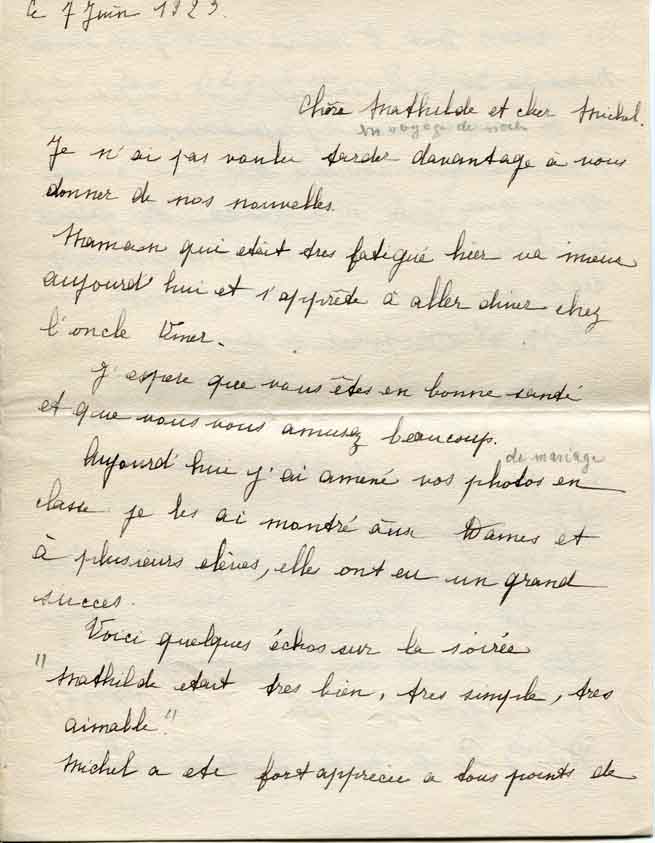 le 7 Juin 1923.
Chère Mathilde et cher Michel.
en voyage de noces
Je n'ai pas voulu tarder davantage à vous
donner de nos nouvelles.
Maman qui etait tres fatigué hier va mieux
aujourd'hui et s'apprête à aller diner chez
l'oncle
J'espere que vous êtes en bonne santé
et que vous vous amusez beaucoup.
de mariage
Aujourd'hui j'ai amené vos photos en
classe je les ai montré aux Dames et
à plusieurs elèves, elles ont eu un grand
succes.
Voici quelques échos sur la soirée
"Mathilde etait tres bien, tres simple, tres
aimable"
Michel a ete fort apprecie a tous points de